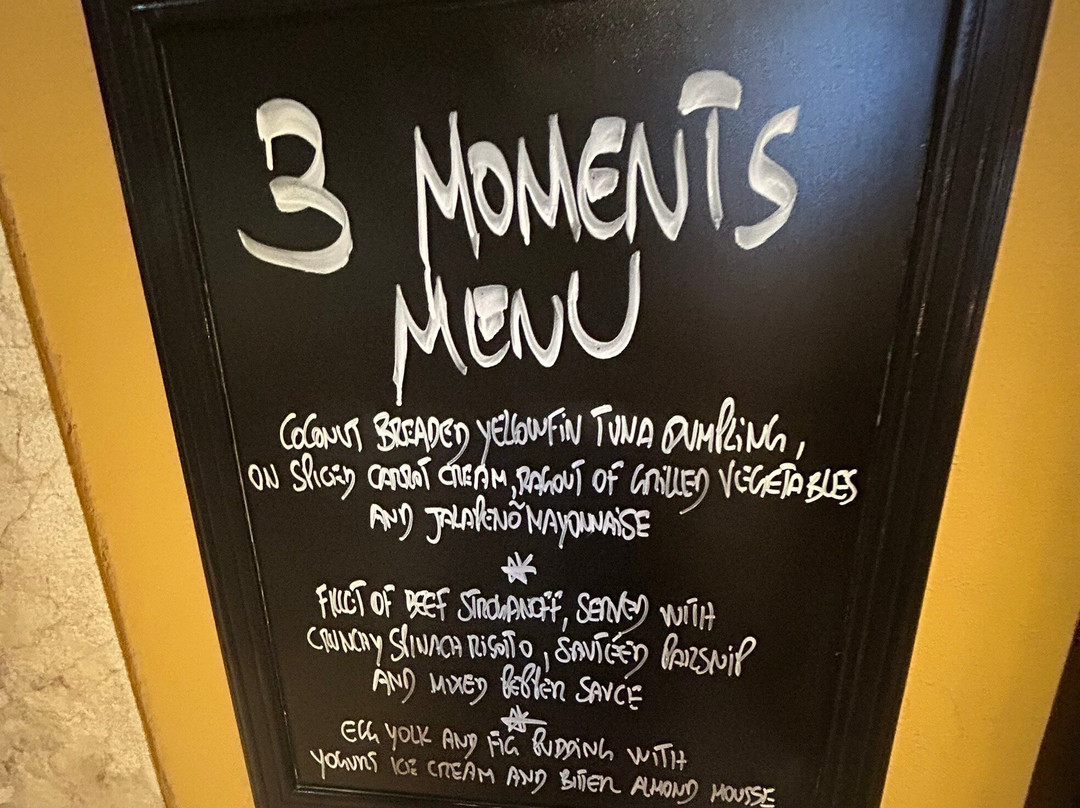 3 MOMENTS
MENU
COCONUT BREADED YELLOWFIN TUNA DUMPLING,
ON SPICED CARROT CREAM, RAGOUT OF GRILLED VEGETABLES
AND JALAPENÕ MAYONNAISE
*
FILLET OF BEEF STROGANOFF, SERVED WITH
CRUNCHY SPINACH RISOTTO, SAUTÉED PARSNIP
AND MIXED PEPPER SAUCE
*
EGG YOLK AND FIG PUDDING WITH
YOGURT ICE CREAM AND BITTER ALMOND MOUSSE